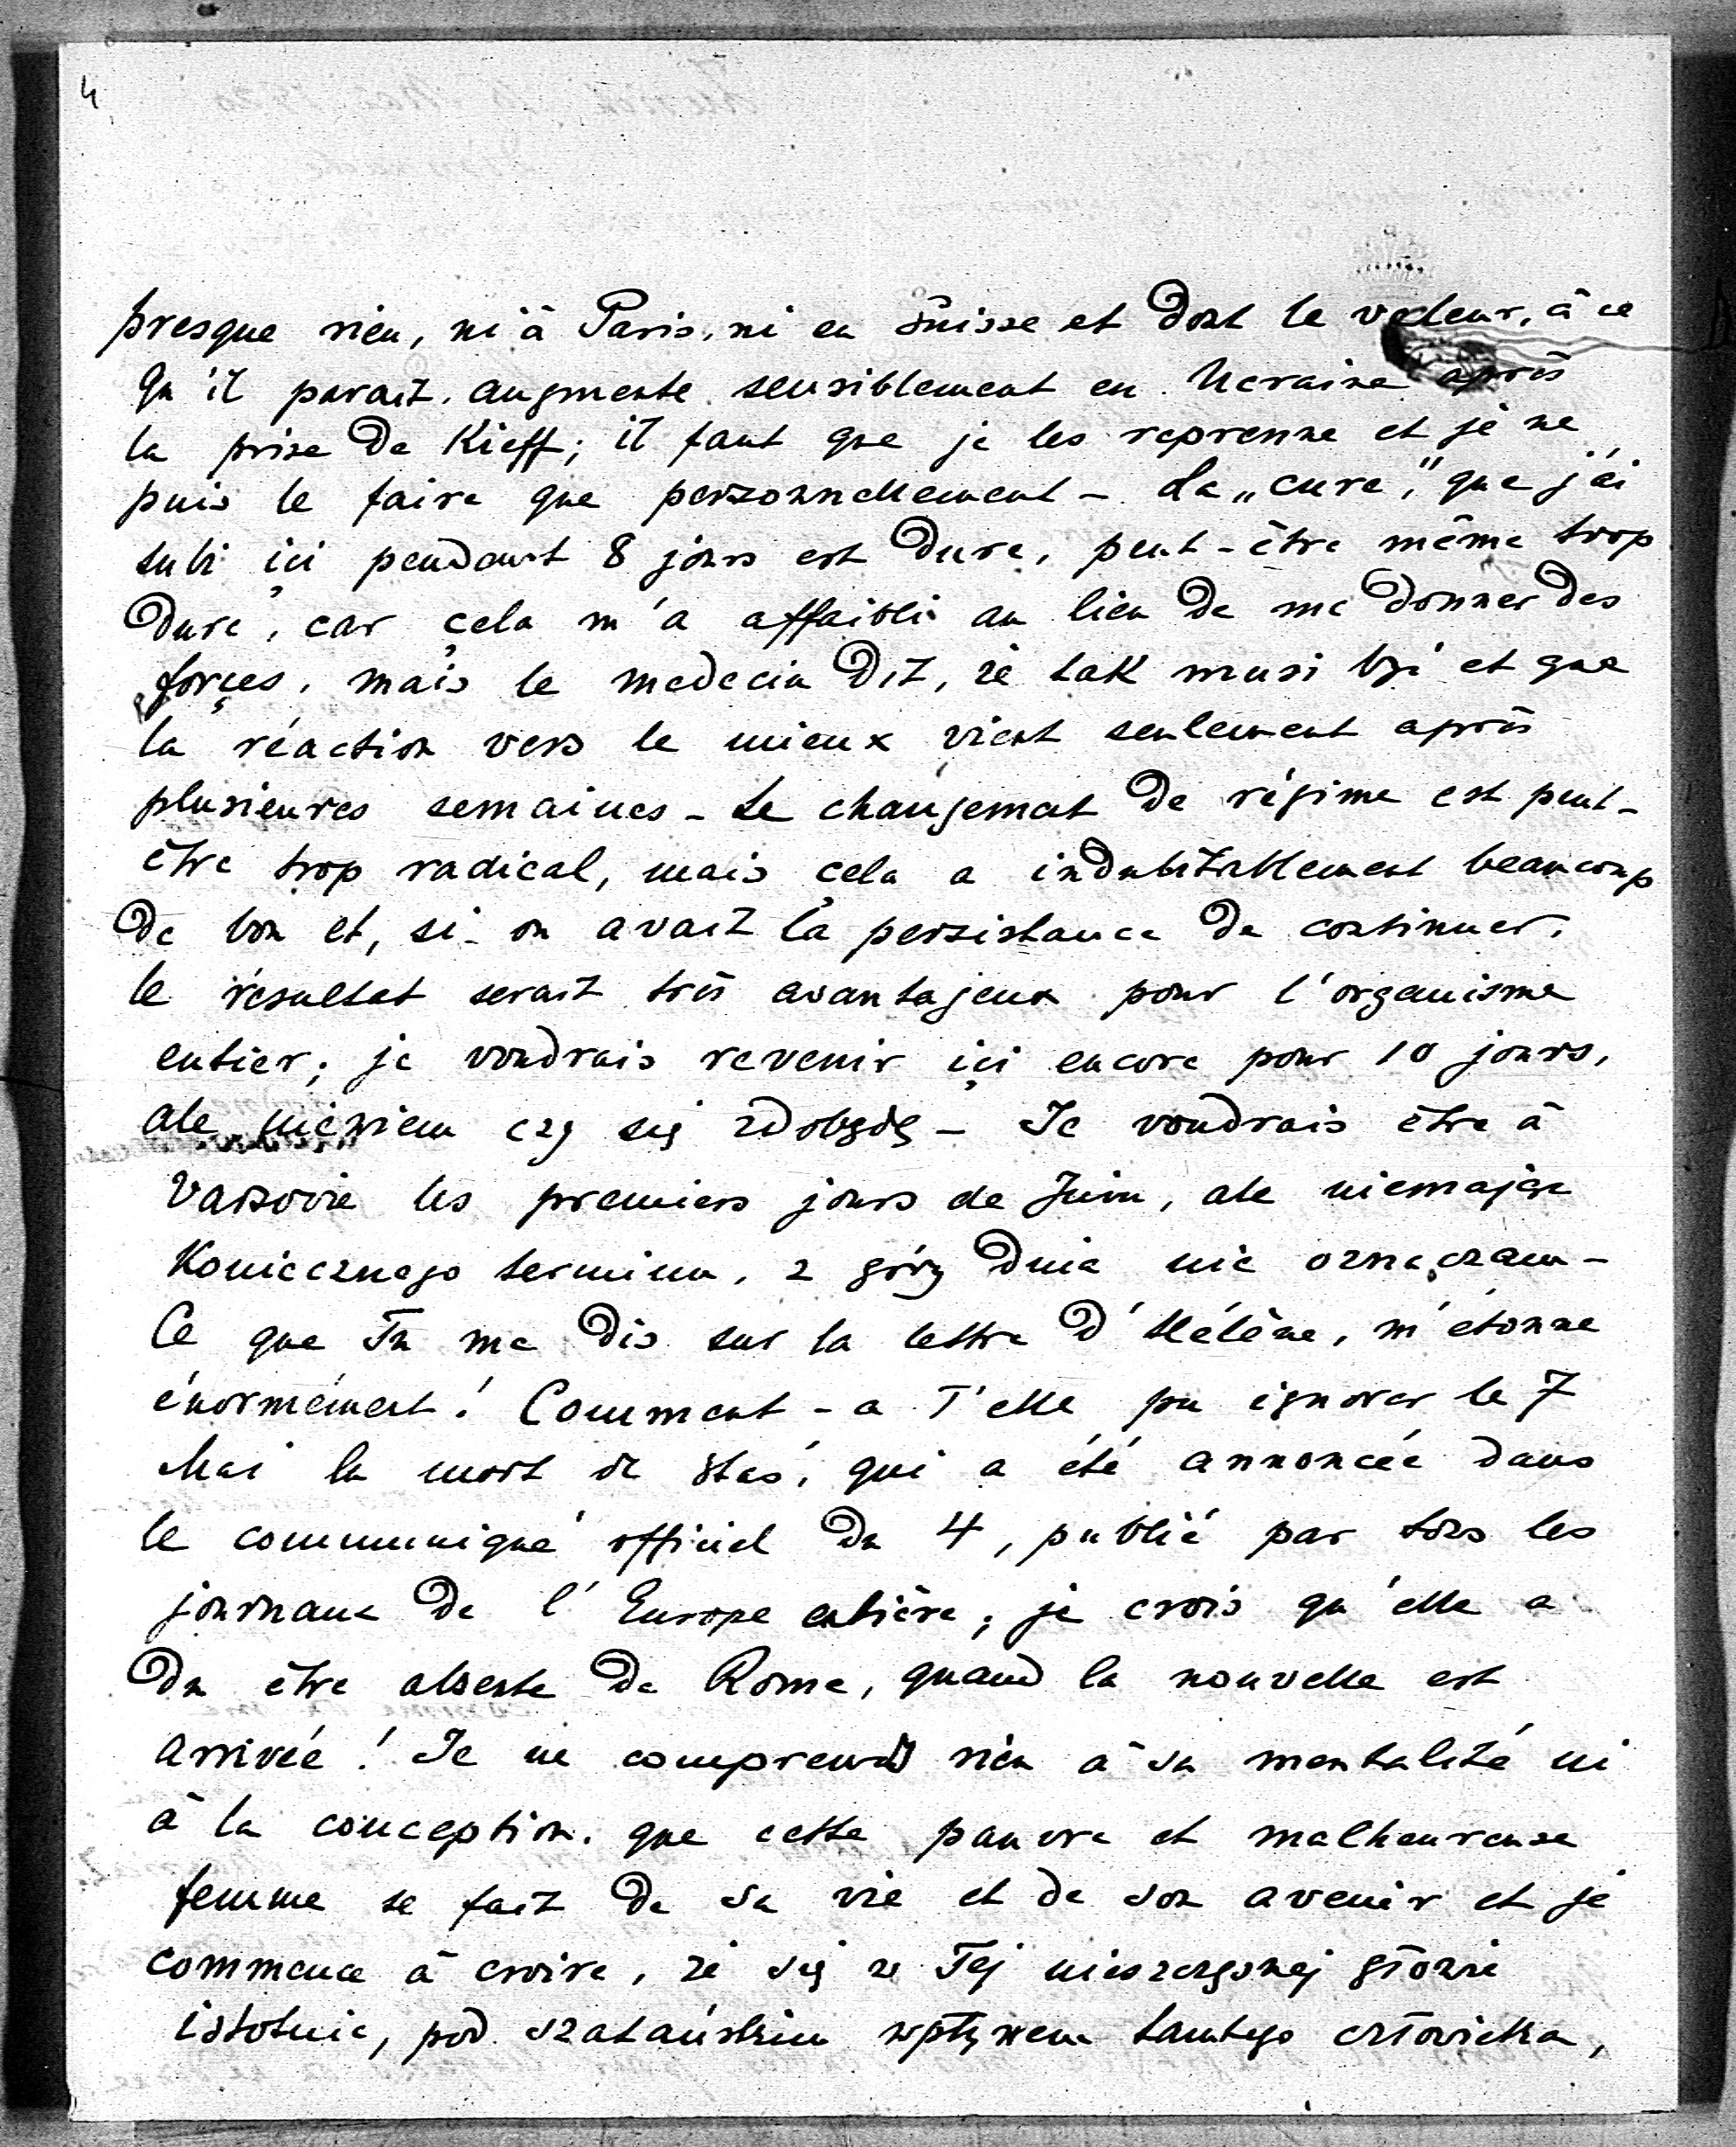 4
presque rien, ni à Paris, ni en Suisse et dont le valeur, à ce
qu'il parait, augmente sensiblement en Ucraine après
la prise de Kieff; il faut que je les reprenne et je ne
puis le faire que personnellement - La „cure", que j'ai
subi içi pendant 8 jours est dure, peut-être même trop
dure, car çela m'a affaibli au lieu de me donner des
forçes, mais le medecin dit, że tak musi być et que
la réaction vers le mieux vient seulement après
plusieures semaines - Le changement de régime est peut-
être trop radical, mais çela a indubitablement beaucoup
de bon et, si on avait la persistance de continuer,
le résultat serait très avantajeux pour l'organisme
entier; je voudrais revenir içi encore pour 10 jours,
ale niewiem czy się zdobędę - Je voudrais être à
Varsovie les premiers jours de Juin, ale niemając
koniecznego terminu, z góry dnia nie oznaczam -
Ce que Tu me dis sur la lettre d'Hélène, m'étonne
énormément! Comment - a T'elle pu ignorer le 7
Mai la mort de Staś, qui a été annoncée dans
le communiqué officiel du 4, publié par tous les
journaux de l'Europe entière; je crois qu'elle a
du être absente de Rome, quand la nouvelle est
arrivée! Je ne comprends rien à sa mentalité ni
à la conception, que cette pauvre et malheureuse
femme se fait de sa vie et de son avenir et je
commence à croire, że się w Tej nieszczęsnej głowie
istotnie, pod szatańskim wpływem tamtego człowieka,